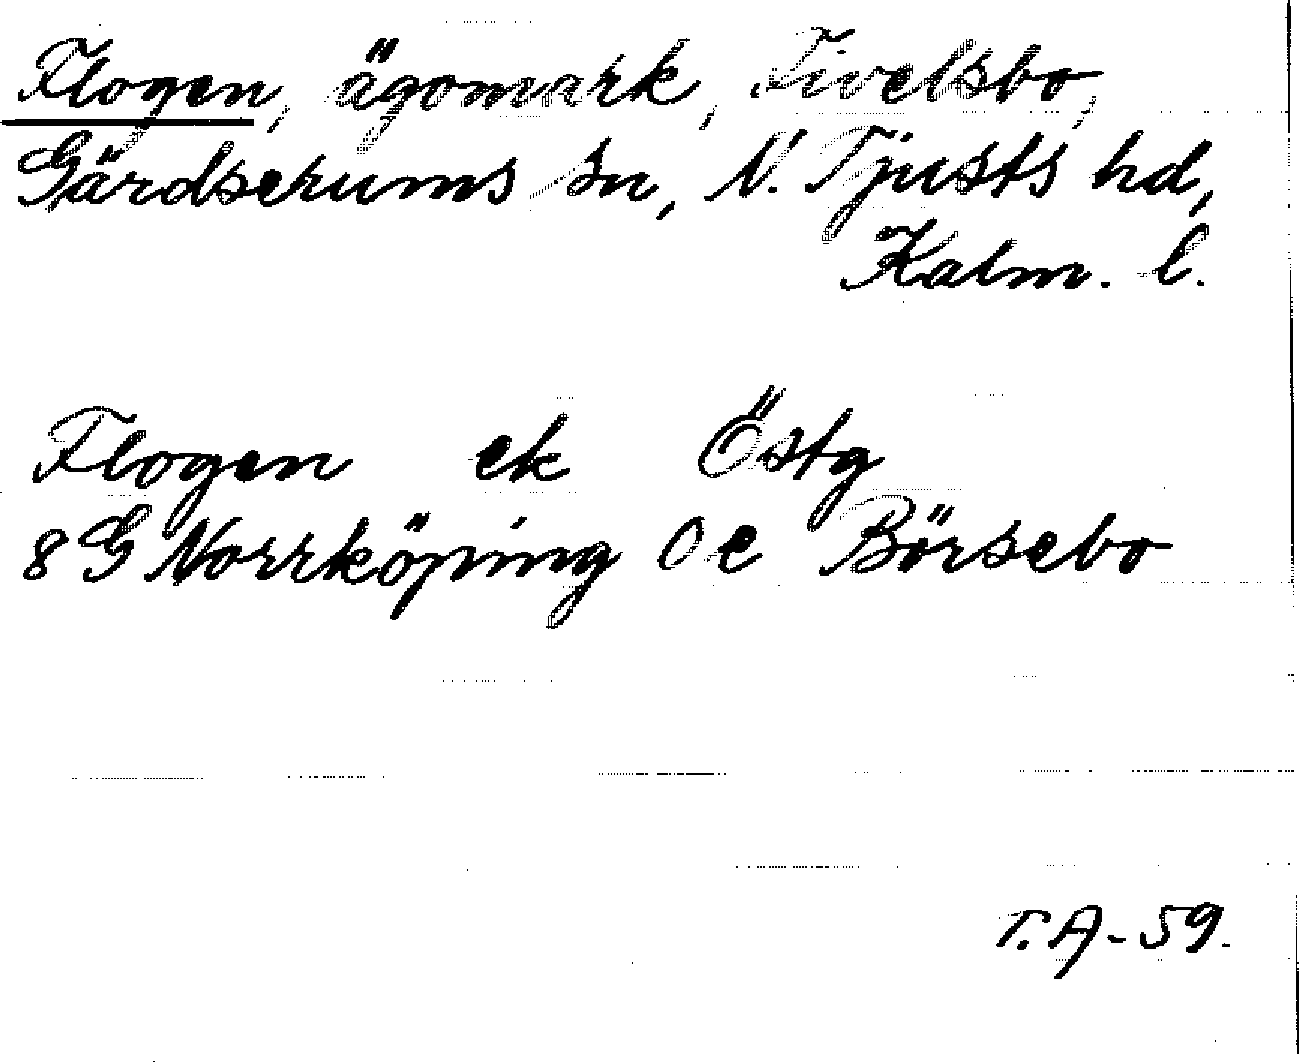 Flogen, ägomark, Fivelsbo,
Gärdserums sn, N. Tjusts hd,
Kalm. l.
Flogen ek Östg
8 G Norrköping 0 e Börsebo
T. A - 59.